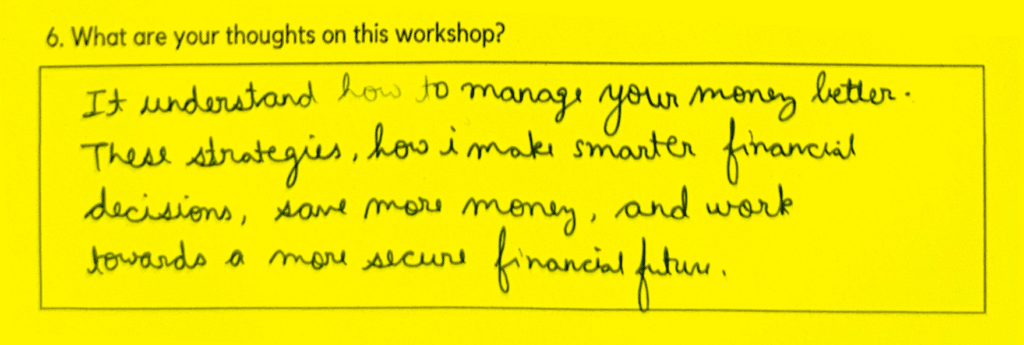 6. What are your thoughts on this workshop?
It understand how to manage your money better.
These strategies, how i make smarter financial
decisions, save more money, and work
towards a more secure financial future.